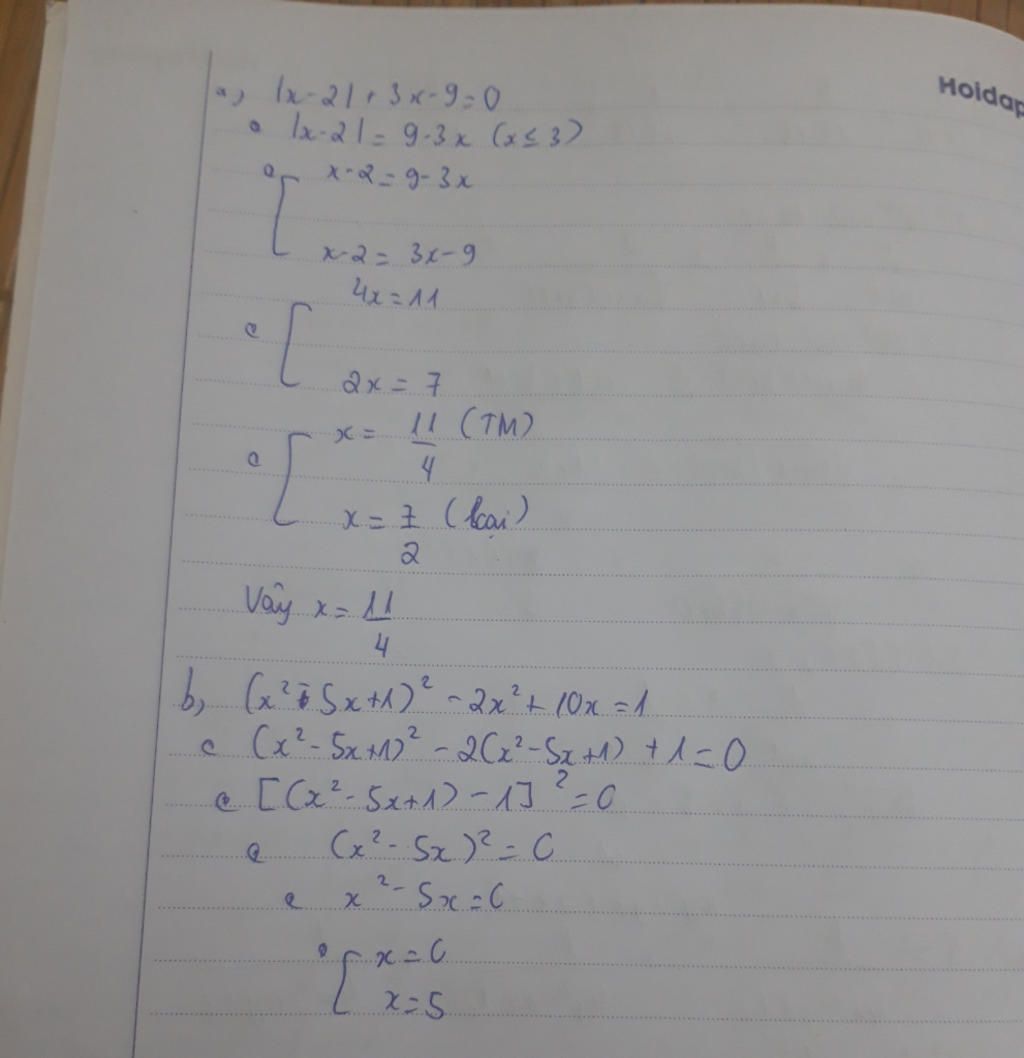 Hoidap
a, |x-2| + 3x-9=0
|x-2| = 9-3x (x≤3)
x-2=9-3x
x-2= 3x-9
4x=11
2x=7
x= 11/4 (TM)
x=7/2 (loại)
Vậy x=11/4
b, (x²-5x+1)² -2x²+10x=1
(x²-5x+1)² -2(x²-5x+1) +1=0
[(x²-5x+1)-1]²=0
(x²-5x)²=0
x²-5x=0
x=0
x=5